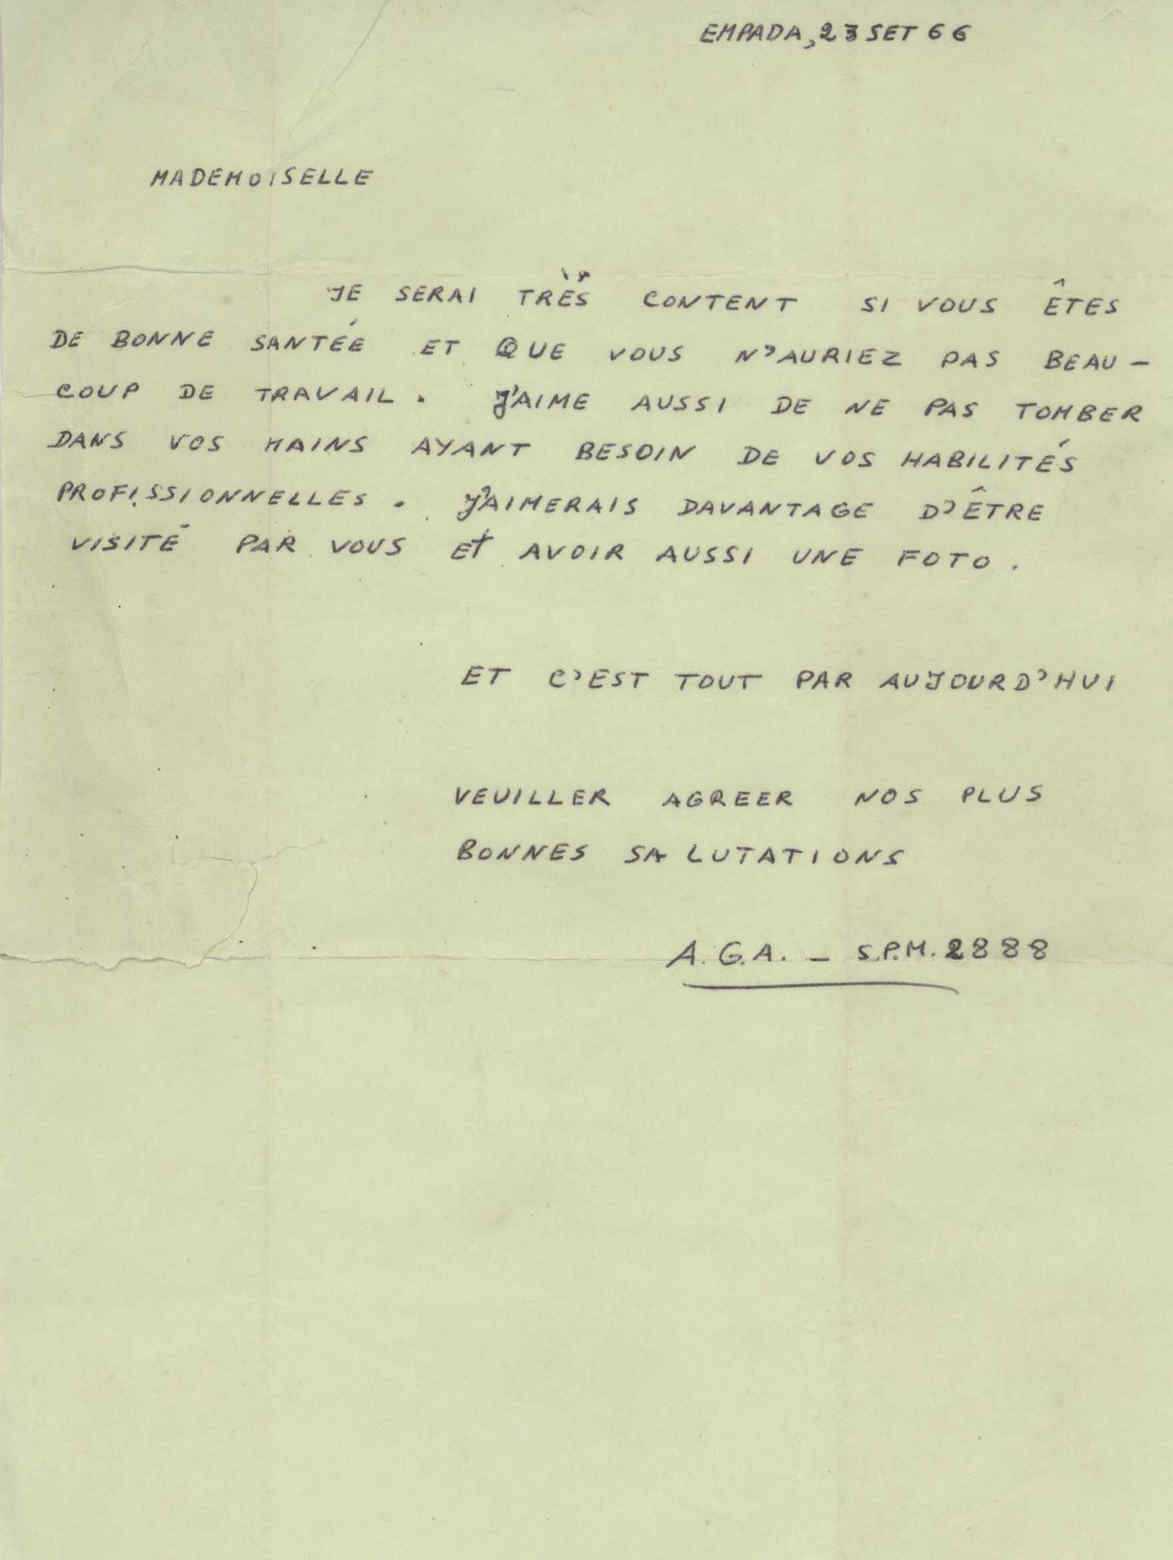 EMPADA, 23 SET 66
MADEMOISELLE
JE SERAI TRÈS CONTENT SI VOUS ÊTES
DE BONNE SANTÉE ET QUE VOUS N'AURIEZ PAS BEAU-
COUP DE TRAVAIL. J'AIME AUSSI DE NE PAS TOMBER
DANS VOS MAINS AYANT BESOIN DE VOS HABILITÉS
PROFISSIONNELLES. J'AIMERAIS DAVANTAGE D'ÊTRE
VISITÉ PAR VOUS ET AVOIR AUSSI UNE FOTO.
ET C'EST TOUT PAR AUJOURD'HUI
VEUILLER AGREER NOS PLUS
BONNES SALUTATIONS
A.G.A. - S.P.M. 2888